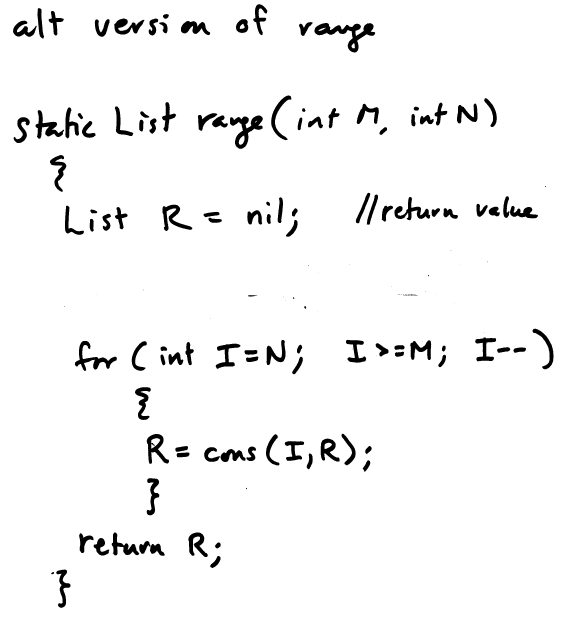 alt version of range
static List range(int M, int N)
{
List R = nil; //return value
for (int I=N; I>=M; I--)
{
R = cons(I,R);
}
return R;
}